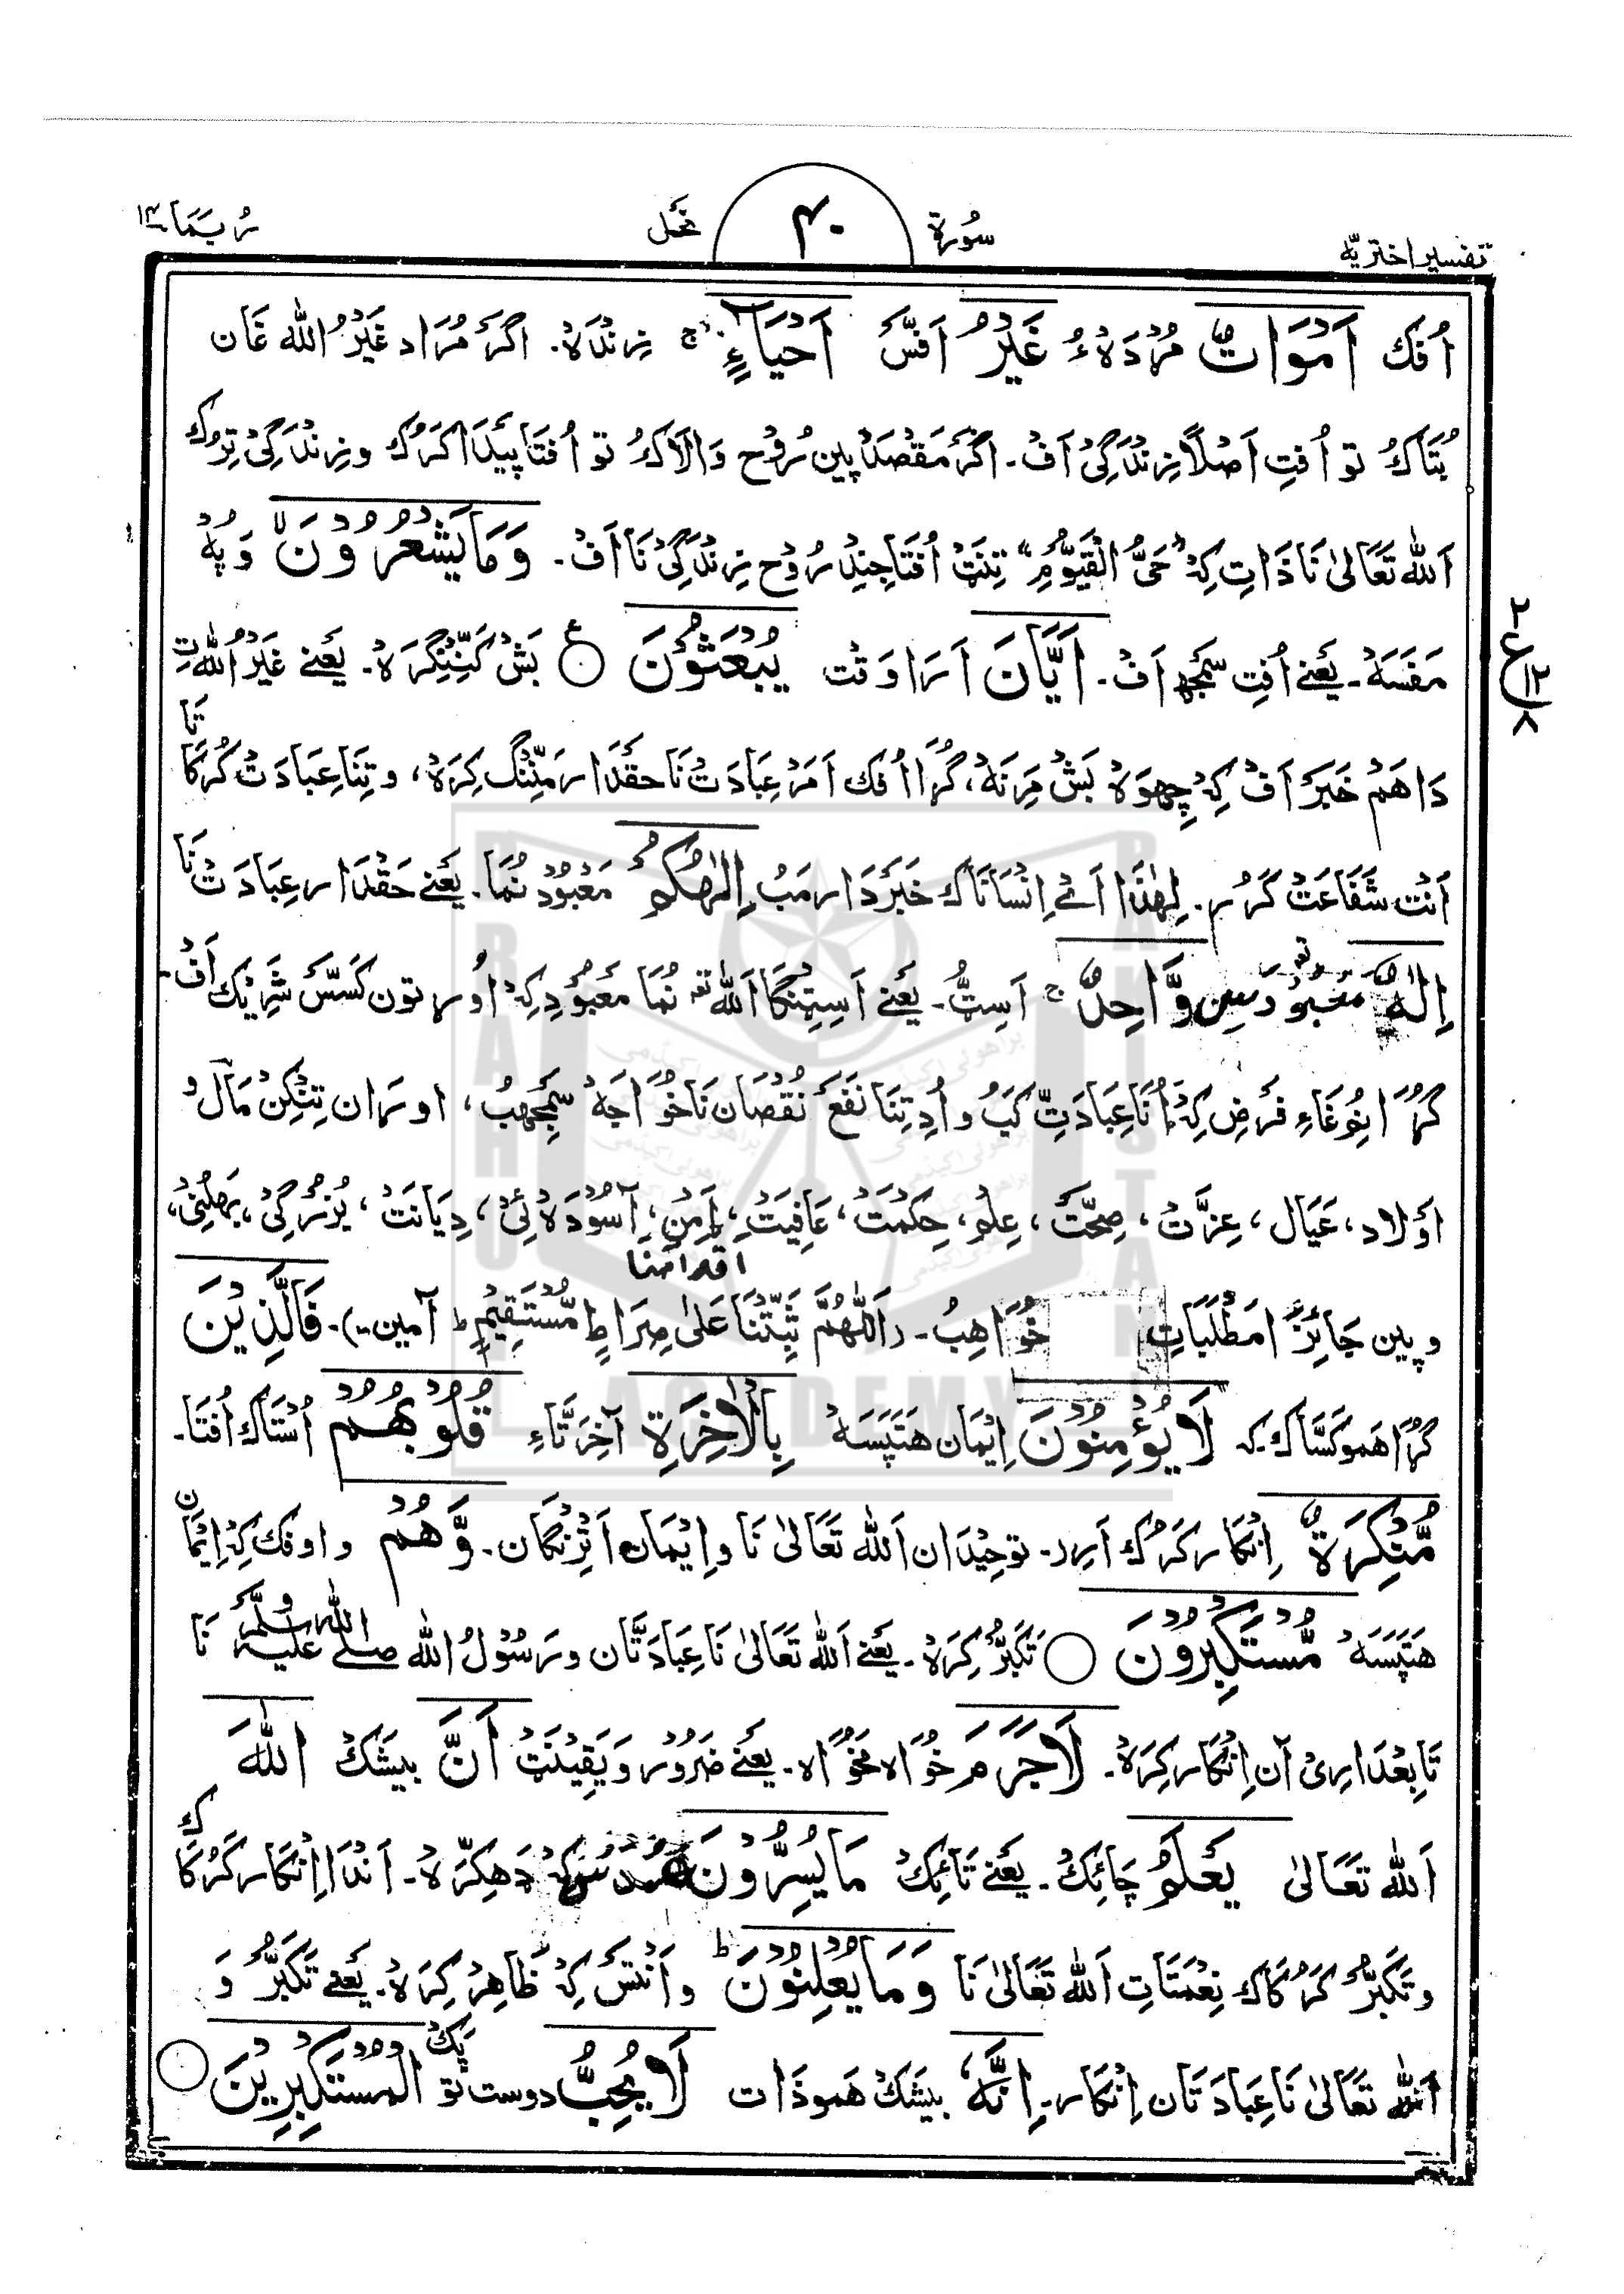 تفسیر اختریہ
سُورۃ
۴۰
نَحل
رُبَمَا ۱۴
اُفک اَمْوَاتٌ مُرْدَہْءُ غَیْرُ اَفسّ اَحْیَآءٍ ج زِنْدَہْ۔ اگرَ مُرَاد غَیْرُ اللہ غَان
بُتَاکُ تو اُفتِ اَصْلاً زِنْدَگِیْ اَفْ۔ اگرَ مَقْصَدْ پین رُوْح وَالَاکُ تو اُفتَا پَیْدَا کَرُک و زِنْدَگِیْ تِرُک
اَللہ تَعَالیٰ نَا ذَاتِ کِہْ "حَیُّ الْقَیُّوْمُ" تِنَتْ اُفتَا جِنْدِ رُوْح زِنْدَگِیْ نَا اَفْ۔ وَمَا یَشْعُرُوْنَ لا وَ پِہْ
مَفَسَہْ۔ یَعْنے اُفتِ سَمَجھ اَفْ۔ اَیَّانَ اَرَا وَقت یُبْعَثُوْنَ ع بَشْ کَنِّنْگِرَہْ۔ یَعْنے غَیْرُ اللہ تِ
دَا ھَمْ خَبَرَ اَفْ کِہْ چِھوَہْ بَشْ مَرِنَہْ، گُڑَا اُفک اَمَرْ عِبَادَتْ نَا حقْدَار مَنِّنْگ کِرَہْ، و تِنَا عِبَادَتْ کُرْکَا تَا
اَنْت شَفَاعَتْ کَرُر۔ لِھٰذَا اَئے اِنْسَانَاک خَبَرْدَار مَبُ اِلٰھُکُمْ مَعْبُوْد نُمَا۔ یَعْنے حَقْدَار عِبَادَتْ نَا
اِلٰہٌ مَعْبُوْدَسِ وَّاحِدٌ ج اَسِٹُّ۔ یَعْنے اَسِٹِنْگَا اَللہ نُمَا مَعبُوْدِ کِہْ اُوْرتون کَسَّسْ شَرِیْک اَفْ۔
گُڑَا نُوغَاءِ فَرض کِہْ اُنَا عِبَادَتِّ کَبُ و اُدِ تِنَا نَفَع نُقْصَان نَا خُوَاجَہْ سَمِجھِبُ، اورَان تِنْکِنْ مَال و
اَوْلَاد، عَیَال، عِزَّتْ، صِحَّتْ، عِلْم، حِکْمَتْ، عَافِیَتْ، اَمْن، آسُوْدَہْ ئِیْ، دِیَانَتْ، بُزْرْگِیْ، بَھلُنِیْ،
و پین جَائِزْ مَطْلَبَاتِ خُوَاھِبُ۔ (اَللّٰھُمَّ ثَبِّتْنَا اقدامنا عَلیٰ صِرَاطٍ مُّسْتَقِیْمٍ ط آمین)۔ فَالَّذِیْنَ
گُڑَا ھَمو کَسَّاک کہ لَا یُؤْمِنُوْنَ اِیْمَان ھَتَپَسَہْ بِالْاٰخِرَۃِ آخِرَتَّاءِ قُلُوْبُھُمْ اُسْتَاک اُفتَا۔
مُّنْکِرَۃٌ اِنْکَار کَرُک اَرِرـ توحِیْدَان اَللہ تَعَالیٰ نَا و اِیْمَان اَنْزِنْگَان۔ وَّھُمْ و اوفک کِہْ اِیْمَان
ھَتَپَسَہْ مُّسْتَکْبِرُوْنَ ○ تَکَبُّر کِرَہْ۔ یَعْنے اَللہ تَعَالیٰ نَا عِبَادَتَّان و رَسُوْلُ اللہ صلی اللہ علیہ وسلم نَا
تَابِعْدَارِیْ آن اِنْکَار کِرَہْ۔ لَا جَرَمَ خُوَاہ مَخُوَاہ۔ یَعْنے ضَرُوْر وَ یَقِیْنَتْ اَنَّ بیشَکْ اللہَ
اَللہ تَعَالیٰ یَعْلَمُ چَائِکْ۔ یَعْنے تَائِکْ مَا یُسِرُّوْنَ کِہْ ڈَھِکِرَہْ۔ اَنْدَا اِنْکَار کَرُکَاک
و تَکَبُّر کَرُکَاک نِعْمَتَاتِ اَللہ تَعَالیٰ نَا وَمَا یُعْلِنُوْنَ ط و اَنْتَسْ کِہْ ظَاہِرْ کِرَہْ۔ یَعْنے تَکَبُّر وَ
اَللہ تَعَالیٰ نَا عِبَادَتَان اِنْکَار۔ اِنَّہٗ بیشَکْ ھَمو ذَات لَا یُحِبُّ دوست تو پَکْ الْمُسْتَکْبِرِیْنَ ○
BRAHUI
ACADEMY
PAKISTAN